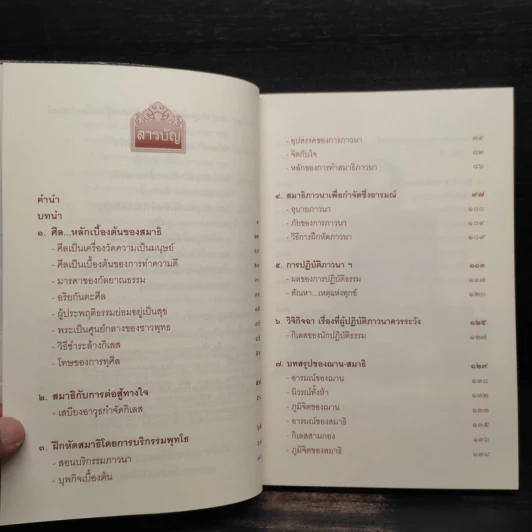 สารบัญ
คำนำ
บทนำ
๑. ศีล...หลักเบื้องต้นของสมาธิ
- ศีลเป็นเครื่องวัดความเป็นมนุษย์
- ศีลเป็นเบื้องต้นของการทำความดี
- มารดาของกัลยาณธรรม
- อริยกันตะศีล
- ผู้ประพฤติธรรมย่อมอยู่เป็นสุข
- พระเป็นศูนย์กลางของชาวพุทธ
- วิธีชำระล้างกิเลส
- โทษของการทุศีล
๒. สมาธิกับการต่อสู้ทางใจ
- เสบียงอาวุธกำจัดกิเลส
๓. ฝึกหัดสมาธิโดยการบริกรรมพุทโธ
- สอนบริกรรมภาวนา
- บุพกิจเบื้องต้น
- อุปสรรคของการภาวนา
- จิตกับใจ
- หลักของการทำสมาธิภาวนา ๘๖
๔. สมาธิภาวนาเพื่อกำจัดซึ่งอารมณ์ ๙๗
- อุบายภาวนา ๑๐๐
- ภัยของการภาวนา ๑๐๔
- วิธีการฝึกหัดภาวนา ๑๐๙
๕. การปฏิบัติภาวนา ฯ ๑๑๓
- ผลของการปฏิบัติธรรม ๑๑๗
- ตัณหา...เหตุแห่งทุกข์ ๑๒๐
๖. วิจิกิจฉา เรื่องที่ผู้ปฏิบัติภาวนาควรระวัง ๑๒๕
- กิเลสของนักปฏิบัติธรรม
๗. บทสรุปของฌาน-สมาธิ ๑๒๙
- อารมณ์ของฌาน ๑๓๑
- นิวรณ์ทั้งห้า ๑๓๒
- ภูมิจิตของฌาน ๑๓๓
- อารมณ์ของสมาธิ ๑๓๕
- กิเลสสามกอง ๑๓๖
- ภูมิจิตของสมาธิ ๑๓๘